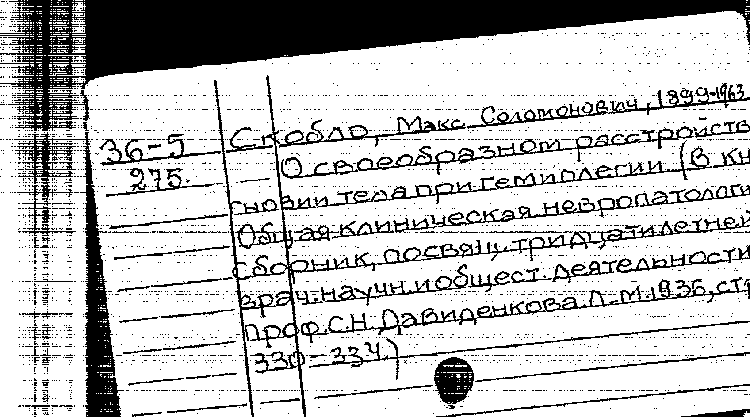 36-5 Скобло, Макс Соломонович, 1899-1963
275. О своеобразном расстройств
гнозии тела при гемиплегии. (В кн
Общая клиническая невропатологи
сборник, посвящ. тридцатилетней
врач. научн. и общест. деятельности
проф. С.Н. Давиденкова. Л.-М. 1936, ст
330-334.)